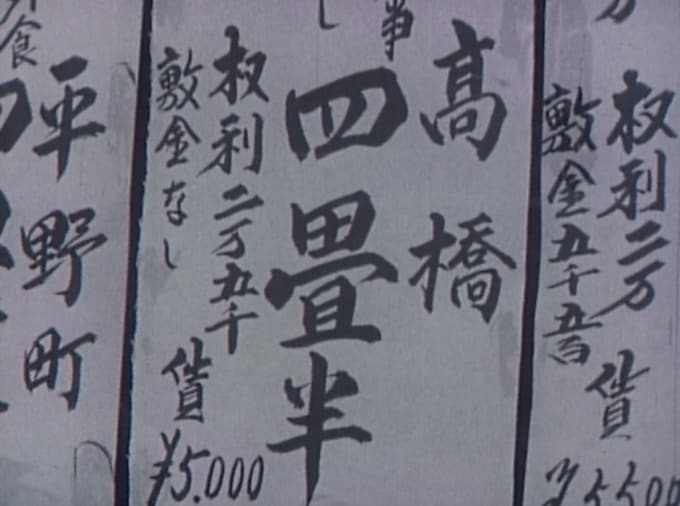 万
権利二万
敷金五千五百
賃
¥5500
事
し
高橋
四畳半
権利二万五千
敷金なし
賃
¥5.000
外食
平野町